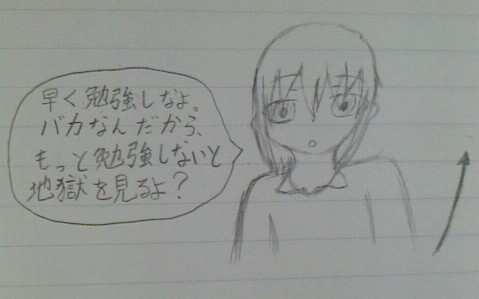 早く勉強しなよ。
バカなんだから、
もっと勉強しないと
地獄を見るよ?